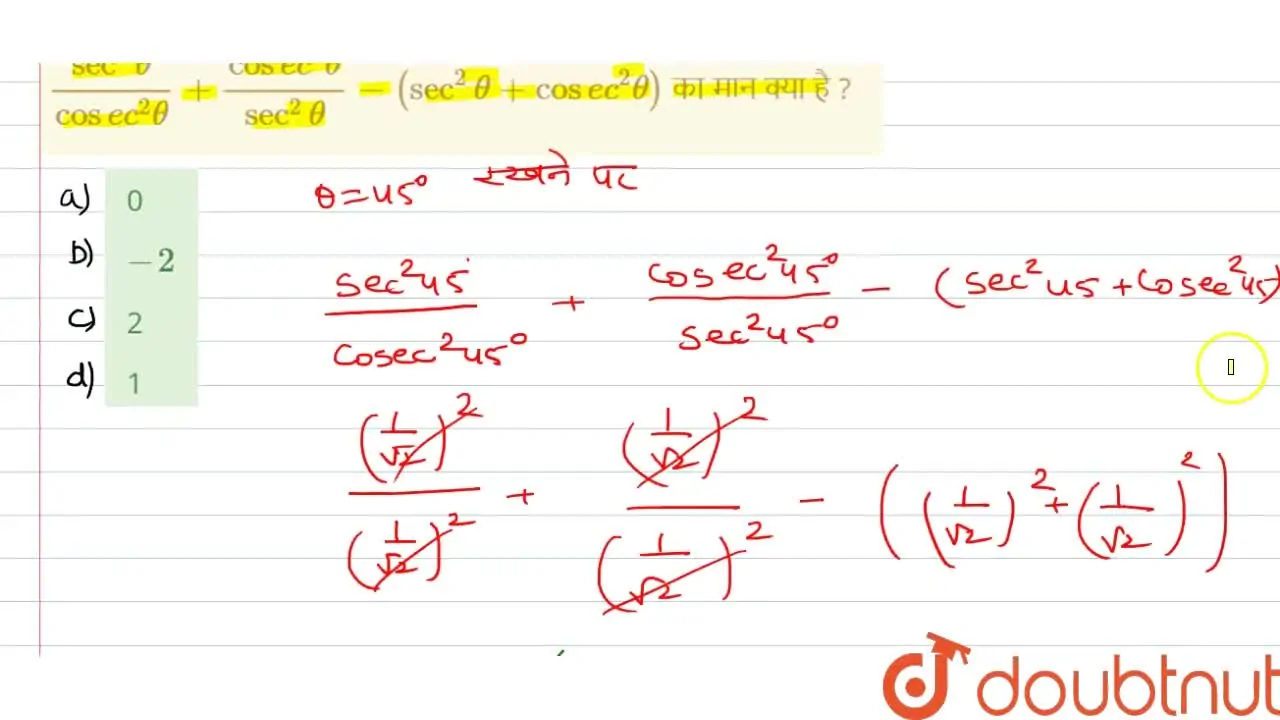 sec²θ/cosec²θ + cosec²θ/sec²θ − (sec²θ + cosec²θ) का मान क्या है ?
a) 0
b) −2
c) 2
d) 1
θ=45° रखने पर
sec²45°/cosec²45° + cosec²45°/sec²45° − (sec²45 + cosec²45)
(1/√2)²/(1/√2)² + (1/√2)²/(1/√2)² − ((1/√2)² + (1/√2)²)
doubtnut